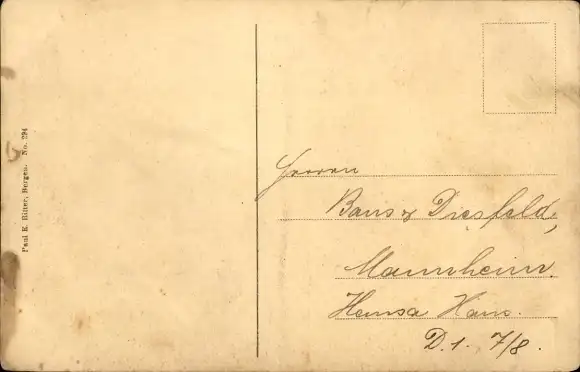 Paul E. Ritter, Bergen. No. 294
Herrn
Diesfeld,
Mannheim
Hansa Haus.
D.1. 7/8.